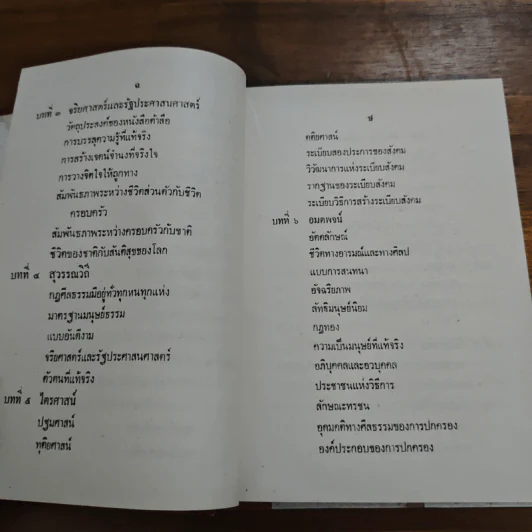 ฉ
บทที่ ๓ จริยศาสตร์และรัฐประศาสนศาสตร์
วัตถุประสงค์ของหนังสือต้าสือ
การบรรลุความรู้ที่แท้จริง
การสร้างเจตน์จำนงที่จริงใจ
การวางจิตใจให้ถูกทาง
สัมพันธภาพระหว่างชีวิตส่วนตัวกับชีวิต
ครอบครัว
สัมพันธภาพระหว่างครอบครัวกับชาติ
ชีวิตของชาติกับสันติสุขของโลก
บทที่ ๔ สุวรรณวิถี
กฎศีลธรรมมีอยู่ทั่วทุกหนทุกแห่ง
มาตรฐานมนุษย์ธรรม
แบบอันดีงาม
จริยศาสตร์และรัฐประศาสนศาสตร์
ตัวตนที่แท้จริง
บทที่ ๕ ไตรศาสน์
ปฐมศาสน์
ทุติยศาสน์
ช
ตติยศาสน์
ระเบียบสองประการของสังคม
วิวัฒนาการแห่งระเบียบสังคม
รากฐานของระเบียบสังคม
ระเบียบวิธีการสร้างระเบียบสังคม
บทที่ ๖ อมตพจน์
อัตตลักษณ์
ชีวิตทางอารมณ์และทางศิลป
แบบการสนทนา
อัจฉริยภาพ
ลัทธิมนุษย์นิยม
กฎทอง
ความเป็นมนุษย์ที่แท้จริง
อภิบุคคลและอวบุคคล
ประชาชนแห่งวิธีการ
ลักษณะทรชน
อุดมคติทางศีลธรรมของการปกครอง
องค์ประกอบของการปกครอง